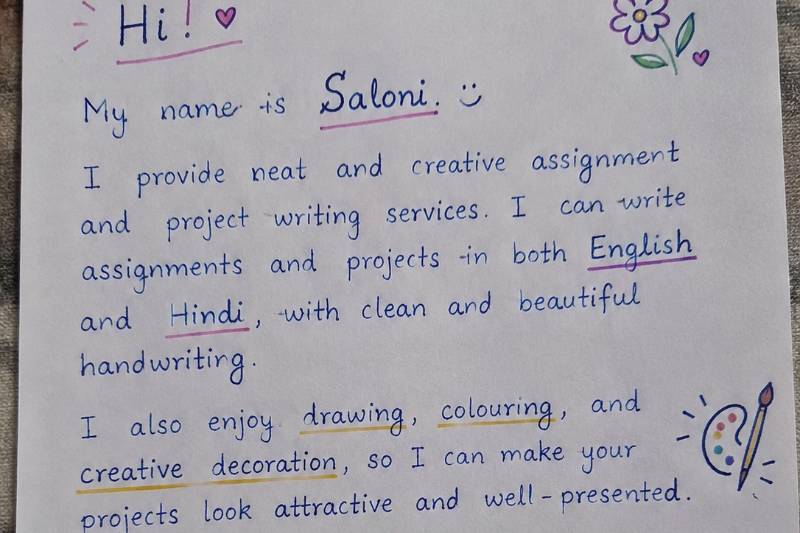 Hi!
My name is Saloni.
I provide neat and creative assignment
and project writing services. I can write
assignments and projects in both English
and Hindi, with clean and beautiful
handwriting.
I also enjoy drawing, colouring, and
creative decoration, so I can make your
projects look attractive and well-presented.